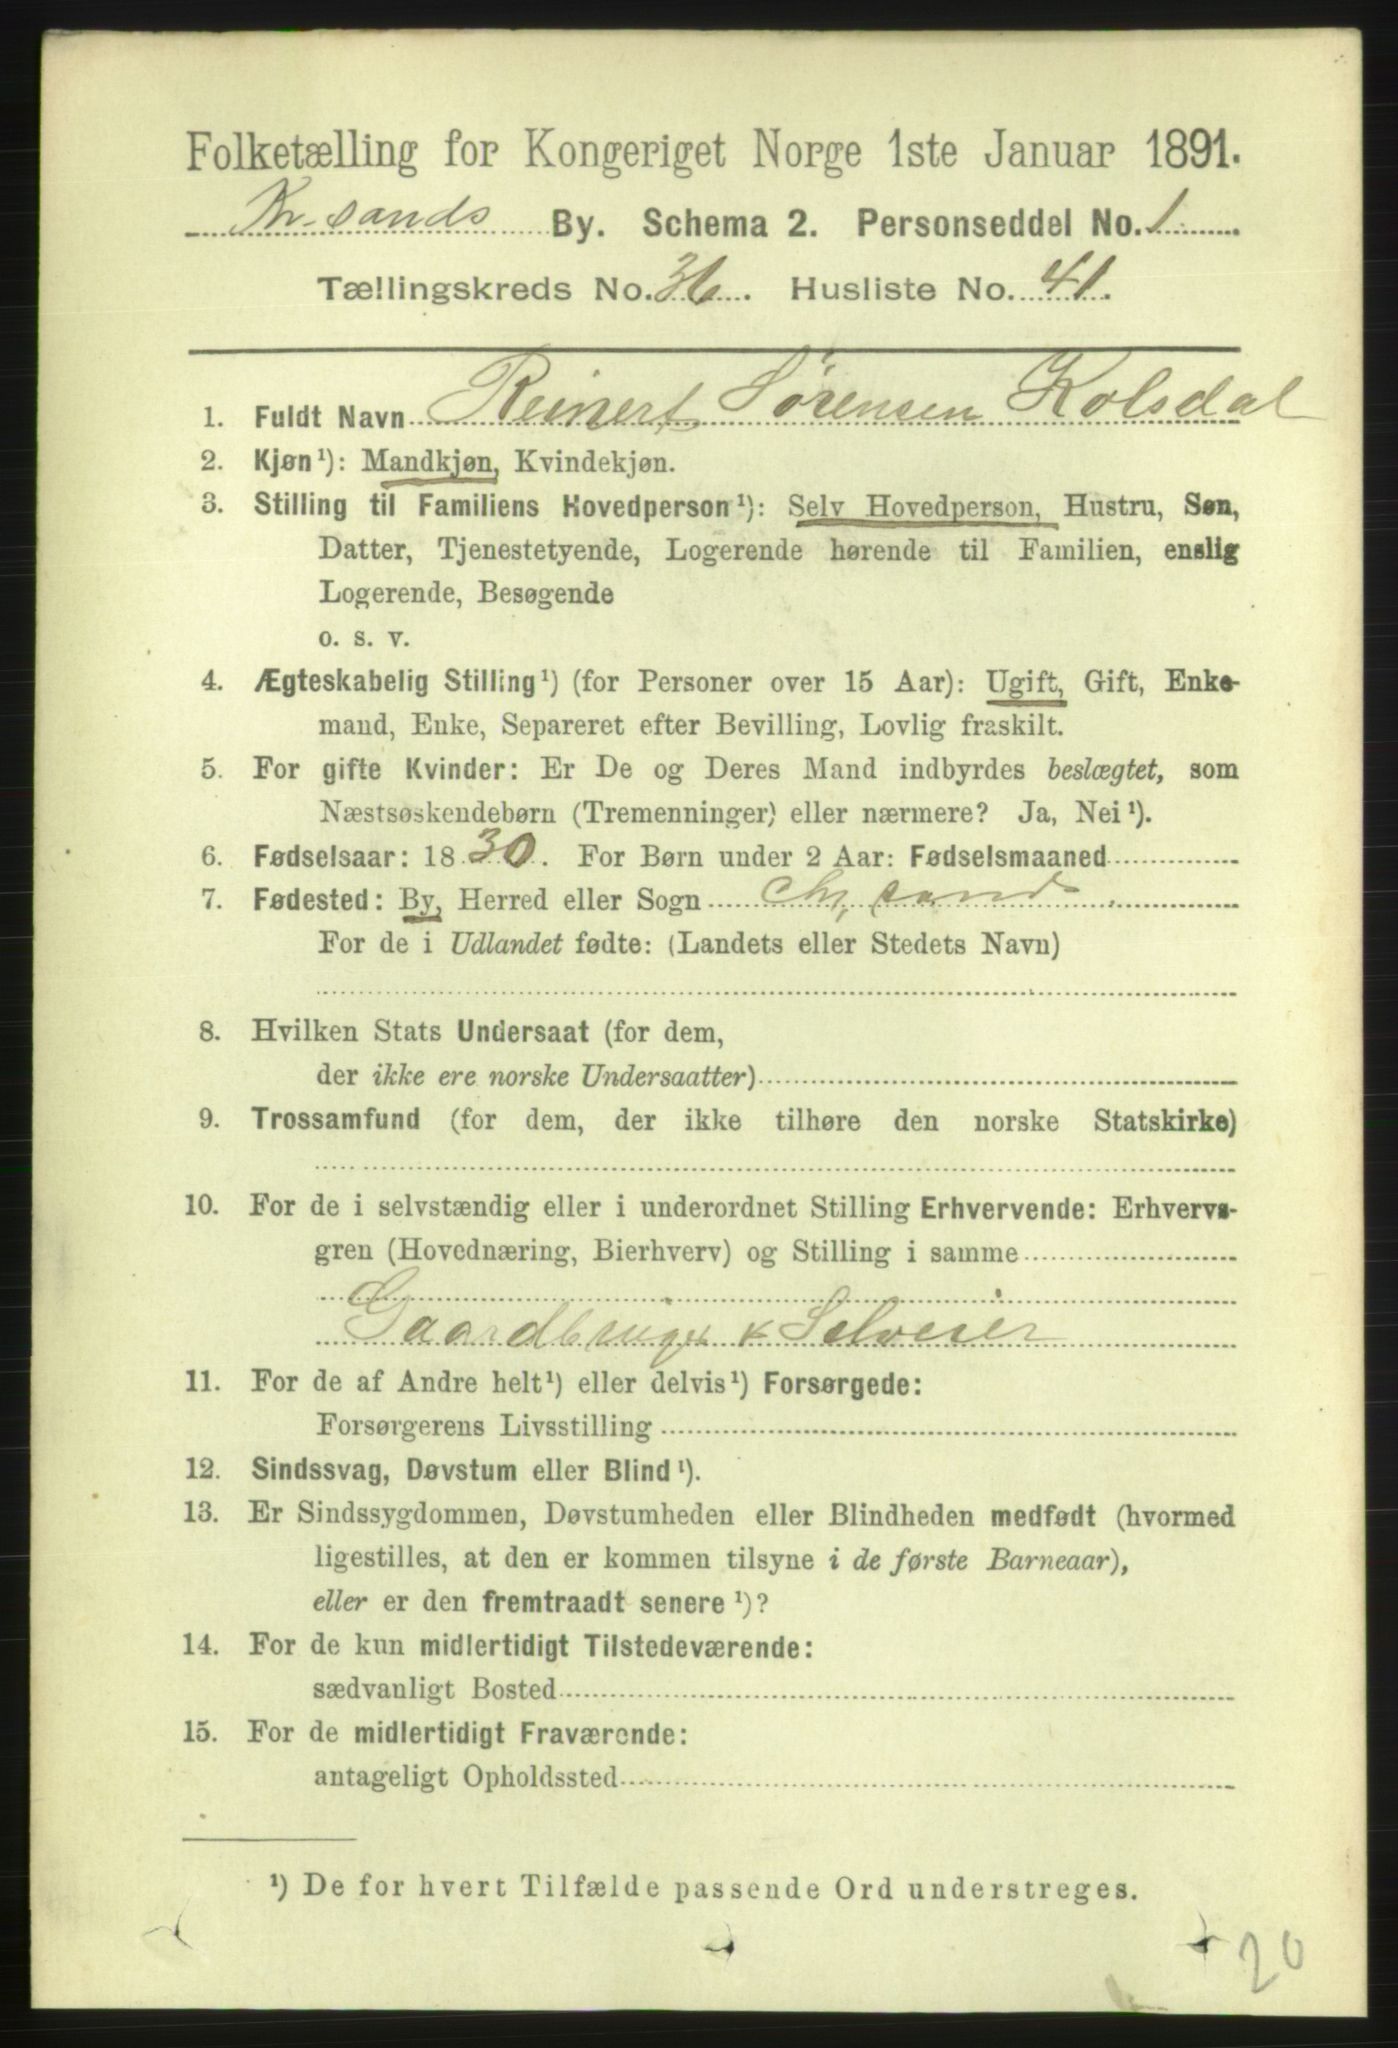 Folketælling for Kongeriget Norge 1ste Januar 1891.
Kr-sands By. Schema 2. Personseddel No. 1
Tællingskreds No. 36. Husliste No. 41.
1. Fuldt Navn Reinert Sørensen Kolsdal
2. Kjøn¹): Mandkjøn, Kvindekjøn.
3. Stilling til Familiens Hovedperson¹): Selv Hovedperson, Hustru, Søn,
Datter, Tjenestetyende, Logerende hørende til Familien, enslig
Logerende, Besøgende
o. s. v.
4. Ægteskabelig Stilling¹) (for Personer over 15 Aar): Ugift, Gift, Enke-
mand, Enke, Separeret efter Bevilling, Lovlig fraskilt.
5. For gifte Kvinder: Er De og Deres Mand indbyrdes beslægtet, som
Næstsøskendebørn (Tremenninger) eller nærmere? Ja, Nei¹).
6. Fødselsaar: 1830. For Børn under 2 Aar: Fødselsmaaned
7. Fødested: By, Herred eller Sogn Chr, sand
For de i Udlandet fødte: (Landets eller Stedets Navn)
8. Hvilken Stats Undersaat (for dem,
der ikke ere norske Undersaatter)
9. Trossamfund (for dem, der ikke tilhøre den norske Statskirke)
10. For de i selvstændig eller i underordnet Stilling Erhvervende: Erhvervs-
gren (Hovednæring, Bierhverv) og Stilling i samme
Gaardbruger & Selveier
11. For de af Andre helt¹) eller delvis¹) Forsørgede:
Forsørgerens Livsstilling
12. Sindssvag, Døvstum eller Blind¹).
13. Er Sindssygdommen, Døvstumheden eller Blindheden medfødt (hvormed
ligestilles, at den er kommen tilsyne i de første Barneaar),
eller er den fremtraadt senere¹)?
14. For de kun midlertidigt Tilstedeværende:
sædvanligt Bosted
15. For de midlertidigt Fraværende:
antageligt Opholdssted
¹) De for hvert Tilfælde passende Ord understreges.
20